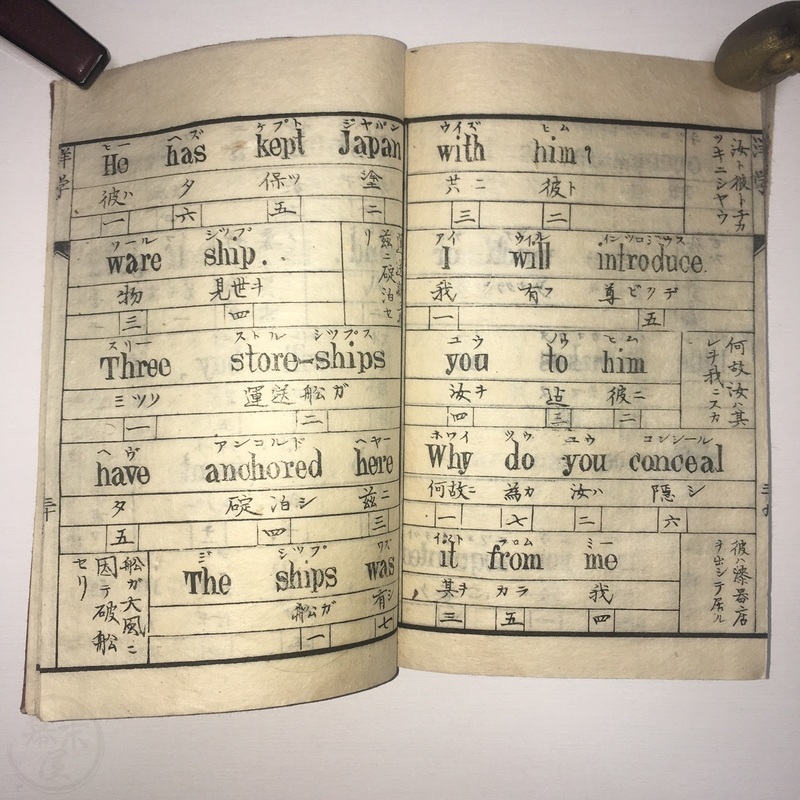 洋学
ウイズ ヒム
with him?
共ニ 彼ト
三 二
汝ト彼トチカ
ツキニシヤウ
アイ ウイル インツロジウス
I will introduce.
我 有フ
一 五
ユウ ヒム
you to him
汝ヲ 迠 彼ニ
四 三 二
何故汝ハ其
レヲ我ニスカ
ホワイ ツウ ユウ コンシール
Why do you conceal
何故ニ 為カ 汝ハ 隠シ
一 七 二 六
フロム ミー
it from me
其ヲ カラ 我
三 五 四
彼ハ漆器店
ヲ出シテ居ル
洋学
ヒー ヘズ ケプト ジヤパン
He has kept Japan
彼ハ タ 保ツ 塗
一 六 五 二
ワール シツプ
ware ship.
物 見世ヲ
三 四
茲ニ碇泊セ
リ
スリー ストル シツプス
Three store-ships
ミツノ 運送船ガ
一 二
ヘヴ アンコルド ヘヤー
have anchored here
タ 碇泊シ 茲ニ
五 四 三
三十
ジ シツプ ワズ
The ships was
船ガ 有シ
一 七
船ガ大風ニ
因テ破船
セリ